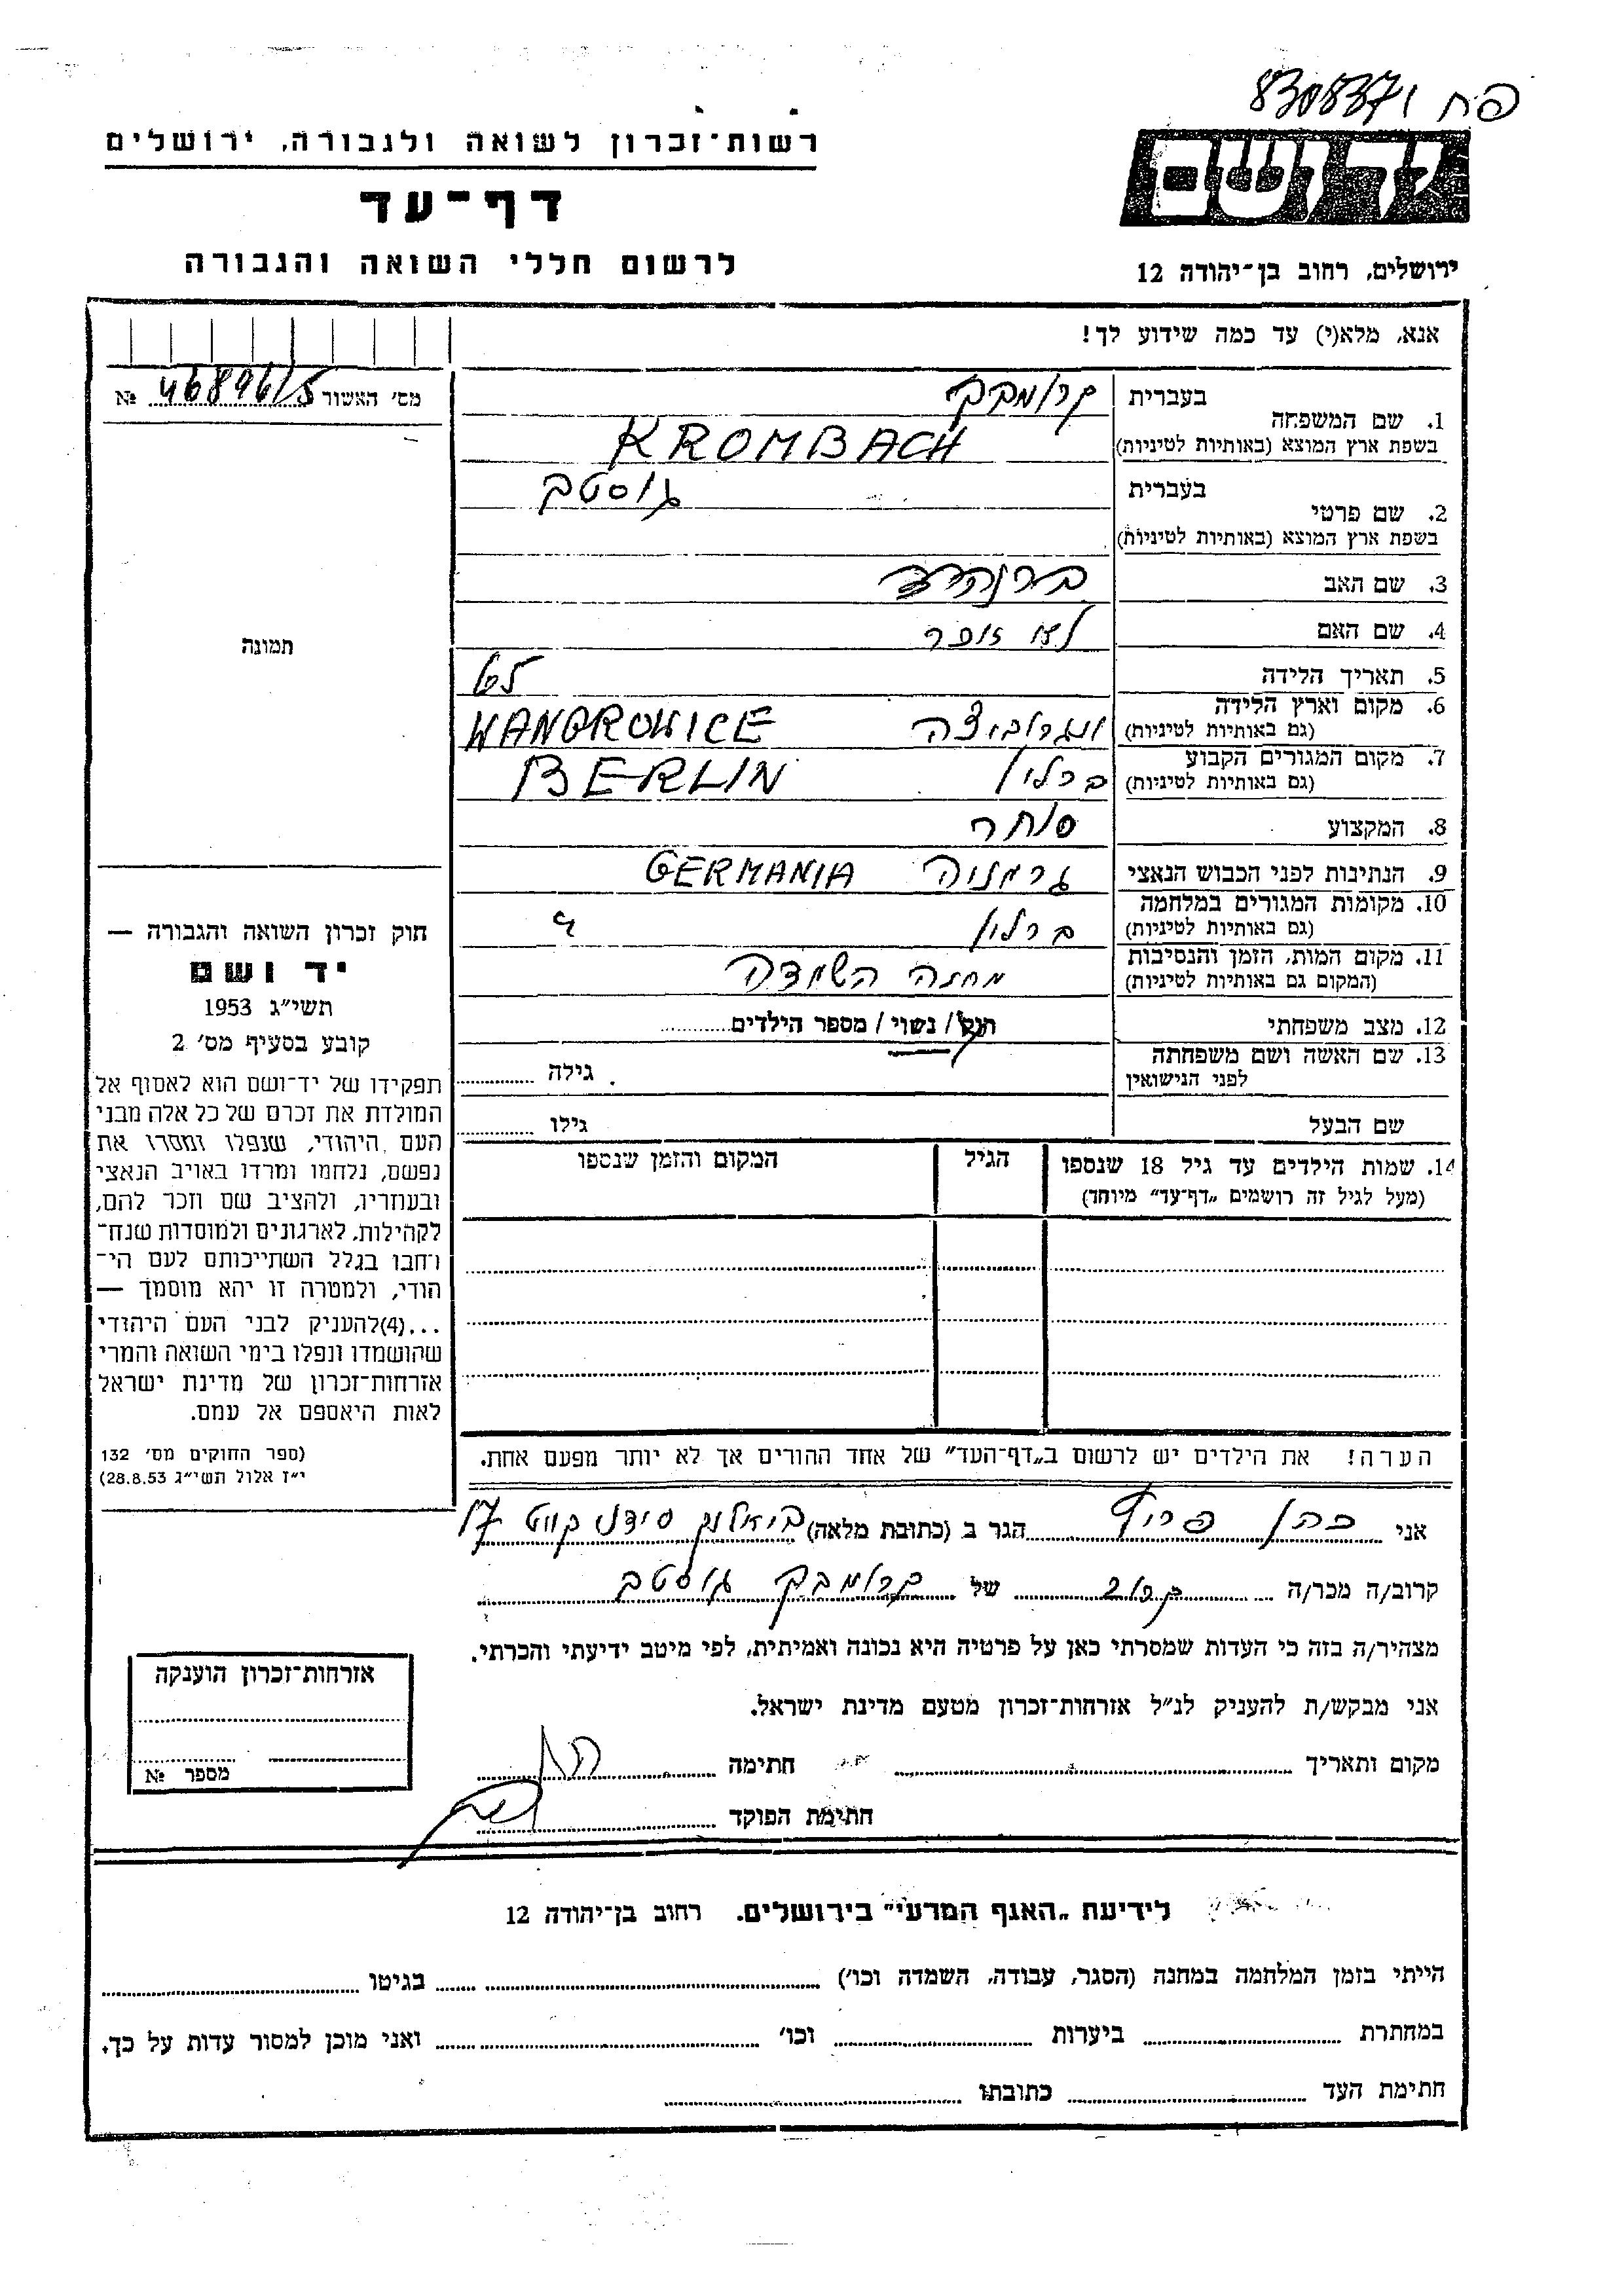 פח 8308371
רשות־זכרון לשואה ולגבורה, ירושלים
יד ושם
דף־עד
לרשום חללי השואה והגבורה
ירושלים, רחוב בן־יהודה 12
אנא, מלא(י) עד כמה שידוע לך!
מס׳ האשור № 46896/5
1. שם המשפחה
בעברית קרומבך
בשפת ארץ המוצא (באותיות לטיניות) KROMBACH
2. שם פרטי
בעברית גוסטב
בשפת ארץ המוצא (באותיות לטיניות)
3. שם האב ברנהרד
4. שם האם
5. תאריך הלידה 65
6. מקום וארץ הלידה
(גם באותיות לטיניות) ונגרוביצה WANGROWICE
7. מקום המגורים הקבוע
(גם באותיות לטיניות) ברלין BERLIN
8. המקצוע סוחר
9. הנתינות לפני הכבוש הנאצי גרמניה GERMANIA
10. מקומות המגורים במלחמה
(גם באותיות לטיניות) ברלין
11. מקום המות, הזמן והנסיבות
(המקום גם באותיות לטיניות) מחנה השמדה
12. מצב משפחתי רווק / נשוי / מספר הילדים
13. שם האשה ושם משפחתה
לפני הנישואין גילה
שם הבעל גילו
14. שמות הילדים עד גיל 18 שנספו הגיל המקום והזמן שנספו
(מעל לגיל זה רושמים „דף־עד״ מיוחד)
הערה! את הילדים יש לרשום ב„דף־העד״ של אחד ההורים אך לא יותר מפעם אחת.
תמונה
חוק זכרון השואה והגבורה —
יד ושם
תשי״ג 1953
קובע בסעיף מס׳ 2
תפקידו של יד־ושם הוא לאסוף אל
המולדת את זכרם של כל אלה מבני
העם היהודי, שנפלו ומסרו את
נפשם, נלחמו ומרדו באויב הנאצי
ובעוזריו, ולהציב שם וזכר להם,
לקהילות, לארגונים ולמוסדות שנח־
רחבו בגלל השתייכותם לעם הי־
הודי, ולמטרה זו יהא מוסמך —
...(4)להעניק לבני העם היהודי
שהושמדו ונפלו בימי השואה והמרי
אזרחות־זכרון של מדינת ישראל
לאות היאספם אל עמם.
(ספר החוקים מס׳ 132
י״ז אלול תשי״ג 28.8.53)
אני כהן הגר ב (כתובת מלאה) ביאליק 17
קרוב/ה מכר/ה קרוב של קרומבך גוסטב
מצהיר/ה בזה כי העדות שמסרתי כאן על פרטיה היא נכונה ואמיתית, לפי מיטב ידיעתי והכרתי.
אני מבקש/ת להעניק לנ״ל אזרחות־זכרון מטעם מדינת ישראל.
מקום ותאריך חתימה
חתימת הפוקד
אזרחות־זכרון הוענקה
מספר №
לידיעת „האגף המדעי״ בירושלים. רחוב בן־יהודה 12
הייתי בזמן המלחמה במחנה (הסגר, עבודה, השמדה וכו׳) בגיטו
במחתרת ביערות וכו׳ ואני מוכן למסור עדות על כך.
חתימת העד כתובתו